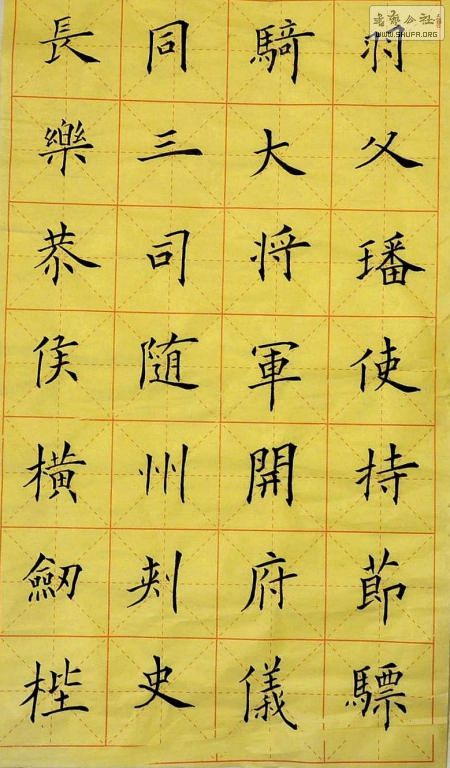 書藝公社
WWW.SHUFA.ORG
羽父璠使持節驃
騎大将軍開府儀
同三司随州刾史
長樂恭侯橫劒梐